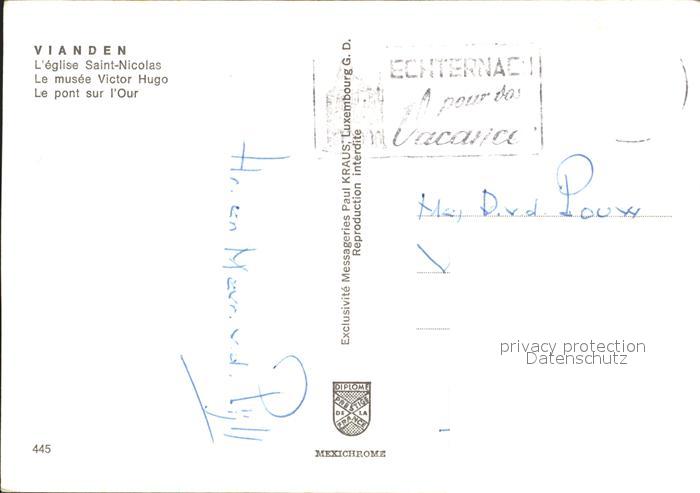 VIANDEN
L'église Saint-Nicolas
Le musée Victor Hugo
Le pont sur l'Our
ECHTERNACH
pour vos
Vacances
Exclusivité Messageries Paul KRAUS, Luxembourg G. D.
Reproduction interdite
Hr. en Mevr. v.d.
D. v.d. Pouw
privacy protection
Datenschutz
DIPLOME
PRESTIGE
DE LA
FRANCE
445
MEXICHROME